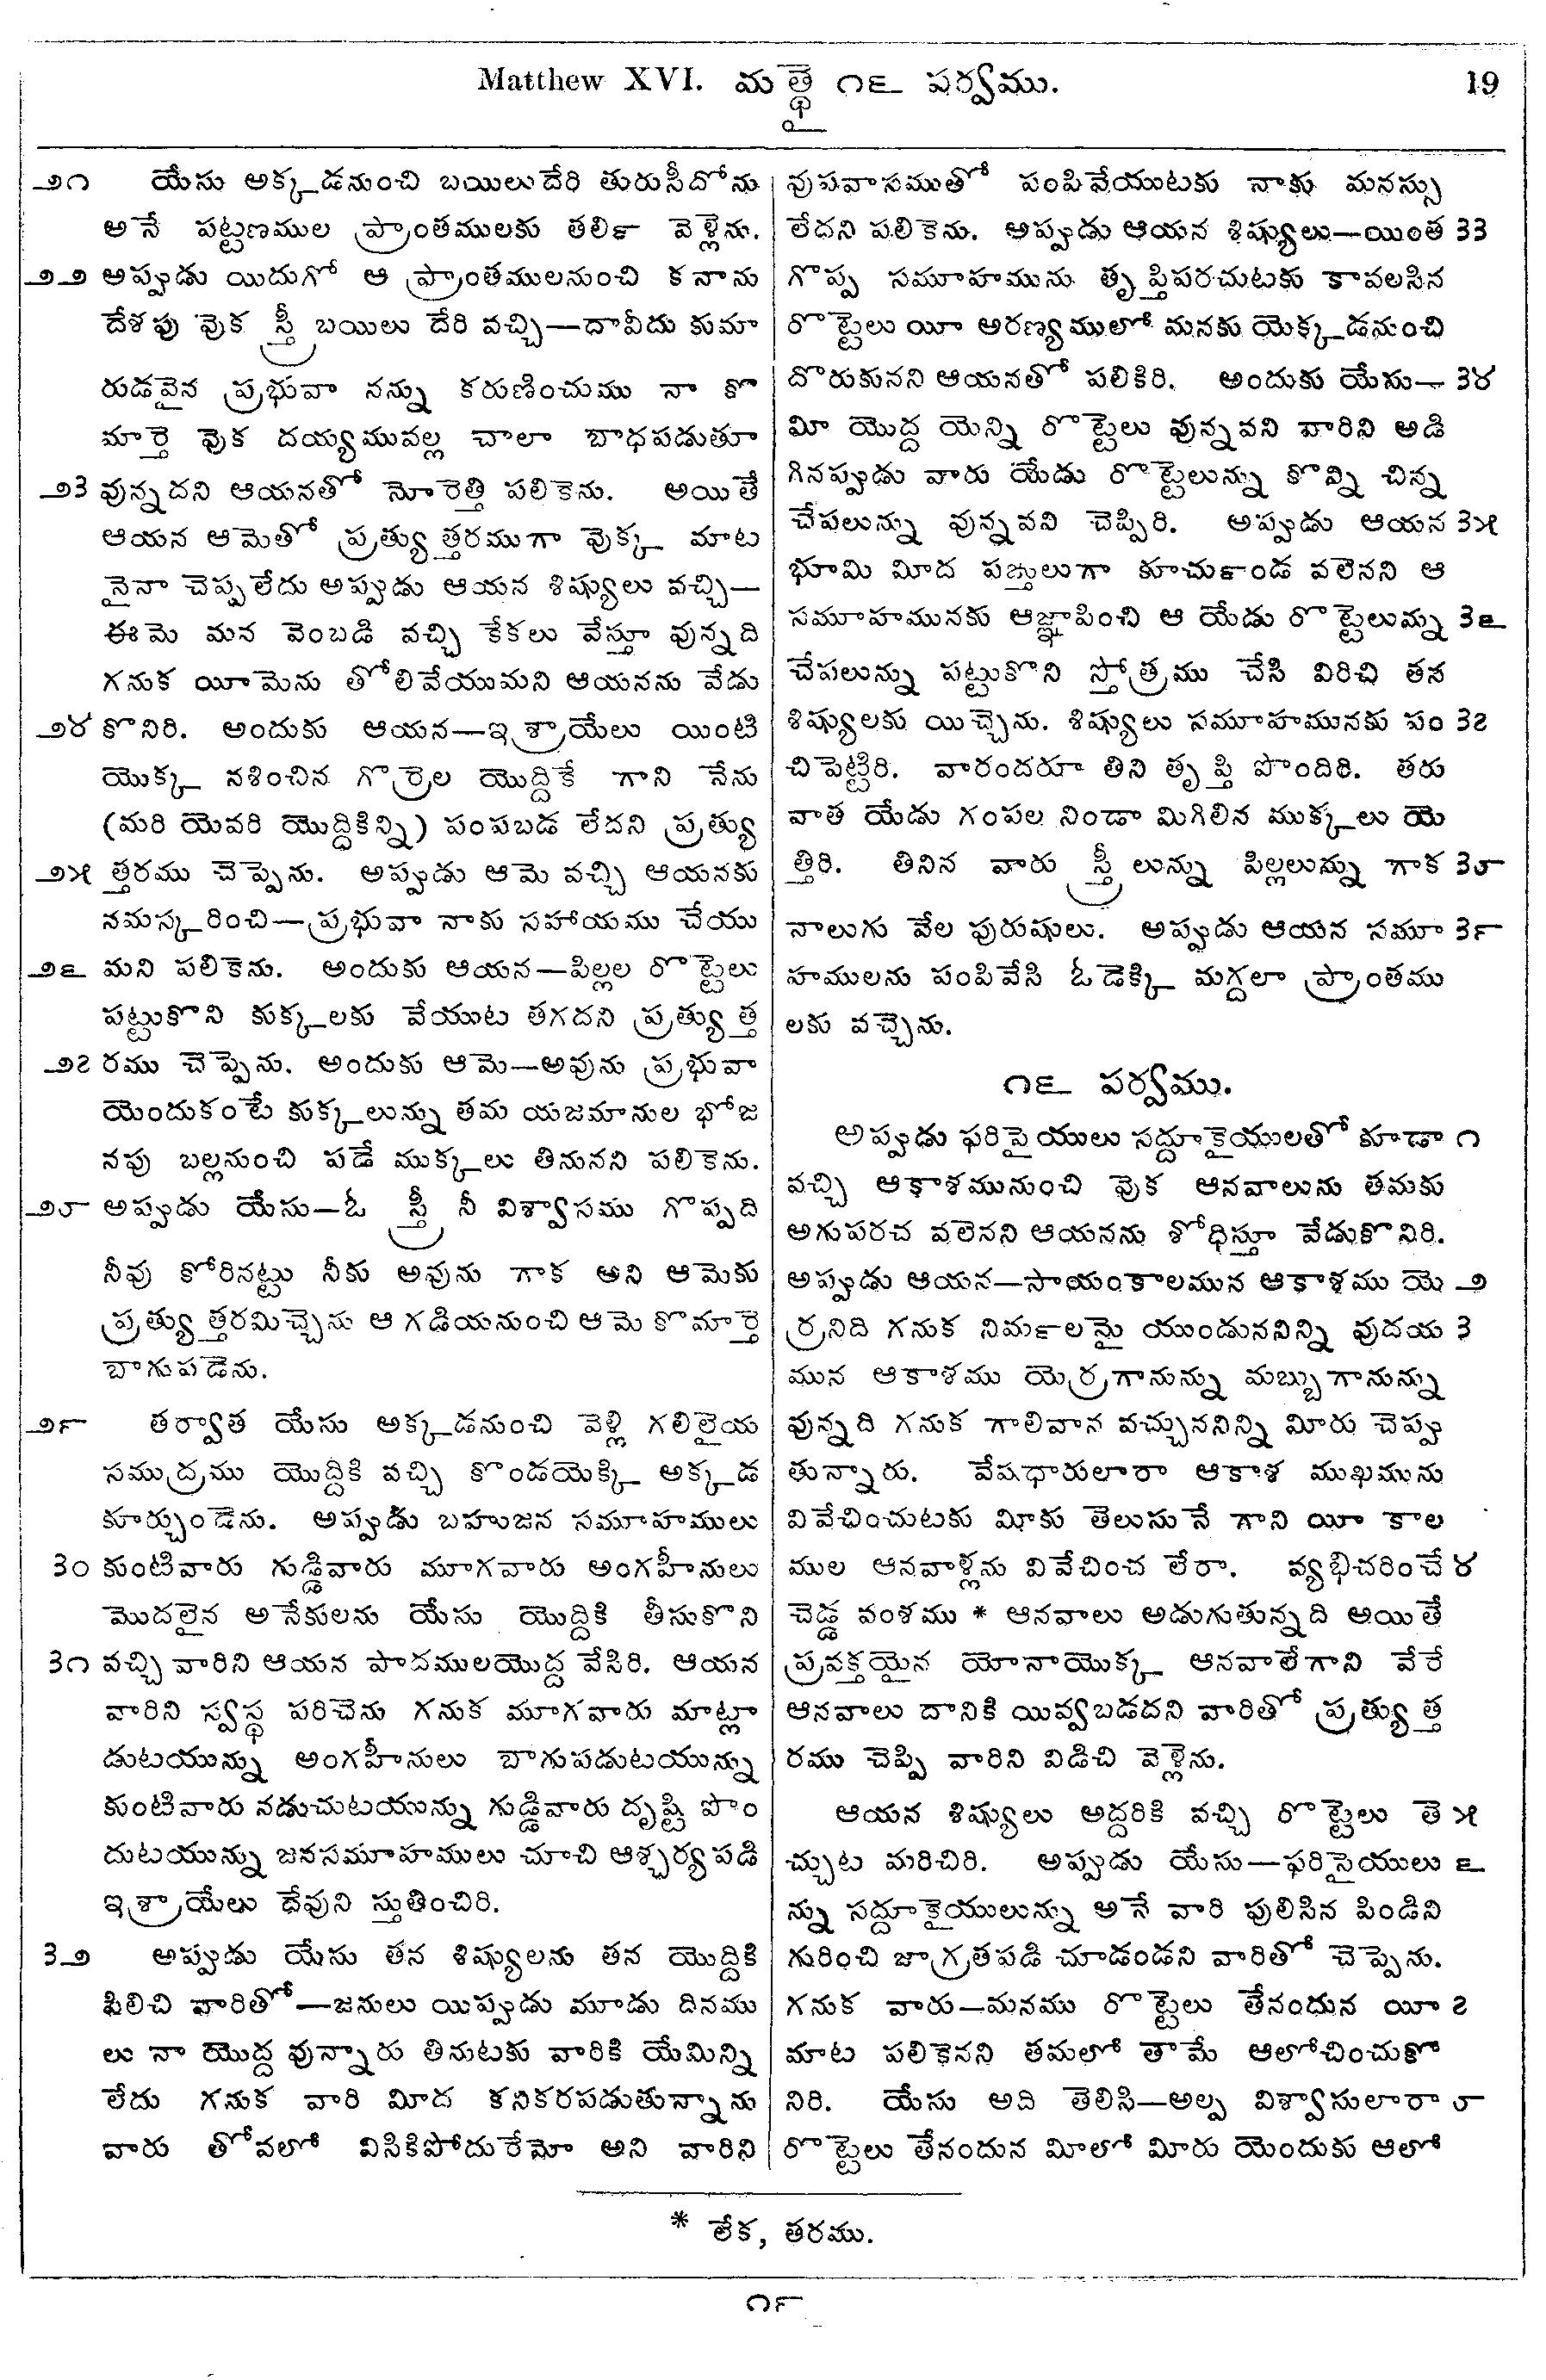 Matthew XVI. మత్థై ౧౬ పర్వము. 19
౨౧ యేసు అక్కడనుంచి బయిలుదేరి తురుసీదోను
అనే పట్టణముల ప్రాంతములకు తర్లి వెళ్లెను.
౨౨ అప్పుడు యిదుగో ఆ ప్రాంతములనుంచి కనాను
దేశపు వొక స్త్రీ బయిలు దేరి వచ్చి—దావీదు కుమా
రుడవైన ప్రభువా నన్ను కరుణించుము నా కొ
మార్తె వొక దయ్యమువల్ల చాలా బాధపడుతూ
౨౩ వున్నదని ఆయనతో నోరెత్తి పలికెను. అయితే
ఆయన ఆమెతో ప్రత్యుత్తరముగా వొక్క మాట
నైనా చెప్పలేదు అప్పుడు ఆయన శిష్యులు వచ్చి—
ఈమె మన వెంబడి వచ్చి కేకలు వేస్తూ వున్నది
గనుక యీమెను తోలివేయుమని ఆయనను వేడు
౨౪ కొనిరి. అందుకు ఆయన—ఇశ్రాయేలు యింటి
యొక్క నశించిన గొర్రెల యొద్దికే గాని నేను
(మరి యెవరి యొద్దికిన్ని) పంపబడ లేదని ప్రత్యు
౨౫ త్తరము చెప్పెను. అప్పుడు ఆమె వచ్చి ఆయనకు
నమస్కరించి—ప్రభువా నాకు సహాయము చేయు
౨౬ మని పలికెను. అందుకు ఆయన—పిల్లల రొట్టెలు
పట్టుకొని కుక్కలకు వేయుట తగదని ప్రత్యుత్త
౨౭ రము చెప్పెను. అందుకు ఆమె—అవును ప్రభువా
యెందుకంటే కుక్కలున్ను తమ యజమానుల భోజ
నపు బల్లనుంచి పడే ముక్కలు తినునని పలికెను.
౨౮ అప్పుడు యేసు—ఓ స్త్రీ నీ విశ్వాసము గొప్పది
నీవు కోరినట్టు నీకు అవును గాక అని ఆమెకు
ప్రత్యుత్తరమిచ్చెను ఆ గడియనుంచి ఆమె కొమార్తె
బాగుపడెను.
౨౯ తర్వాత యేసు అక్కడనుంచి వెళ్లి గలిలైయ
సముద్రము యొద్దికి వచ్చి కొండయెక్కి అక్కడ
కూర్చుండెను. అప్పుడు బహుజన సమూహములు
౩౦ కుంటివారు గుడ్డివారు మూగవారు అంగహీనులు
మొదలైన అనేకులను యేసు యొద్దికి తీసుకొని
౩౧ వచ్చి వారిని ఆయన పాదములయొద్ద వేసిరి. ఆయన
వారిని స్వస్థ పరిచెను గనుక మూగవారు మాట్లా
డుటయున్ను అంగహీనులు బాగుపడుటయున్ను
కుంటివారు నడుచుటయున్ను గుడ్డివారు దృష్టి పొం
దుటయున్ను జనసమూహములు చూచి ఆశ్చర్యపడి
ఇశ్రాయేలు దేవుని స్తుతించిరి.
౩౨ అప్పుడు యేసు తన శిష్యులను తన యొద్దికి
పిలిచి వారితో—జనులు యిప్పుడు మూడు దినము
లు నా యొద్ద వున్నారు తినుటకు వారికి యేమిన్ని
లేదు గనుక వారి మీద కనికరపడుతున్నాను
వారు తోవలో విసికిపోదురేమో అని వారిని
వుపవాసముతో పంపివేయుటకు నాకు మనస్సు
లేదని పలికెను. అప్పుడు ఆయన శిష్యులు—యింత ౩౩
గొప్ప సమూహమును తృప్తిపరచుటకు కావలసిన
రొట్టెలు యీ అరణ్యములో మనకు యెక్కడనుంచి
దొరుకునని ఆయనతో పలికిరి. అందుకు యేసు— ౩౪
మీ యొద్ద యెన్ని రొట్టెలు వున్నవని వారిని అడి
గినప్పుడు వారు యేడు రొట్టెలున్ను కొన్ని చిన్న
చేపలున్ను వున్నవని చెప్పిరి. అప్పుడు ఆయన ౩౫
భూమి మీద పఙ్తులుగా కూచుకొండ వలెనని ఆ
సమూహమునకు ఆజ్ఞాపించి ఆ యేడు రొట్టెలున్ను ౩౬
చేపలున్ను పట్టుకొని స్తోత్రము చేసి విరిచి తన
శిష్యులకు యిచ్చెను. శిష్యులు సమూహమునకు పం ౩౭
చిపెట్టిరి. వారందరూ తిని తృప్తి పొందిరి. తరు
వాత యేడు గంపల నిండా మిగిలిన ముక్కలు యె
త్తిరి. తినిన వారు స్త్రీలున్ను పిల్లలున్ను గాక ౩౮
నాలుగు వేల పురుషులు. అప్పుడు ఆయన సమూ ౩౯
హములను పంపివేసి ఓడెక్కి మగ్దలా ప్రాంతము
లకు వచ్చెను.
౧౬ పర్వము.
అప్పుడు ఫరిసైయులు సద్దూకైయులతో కూడా ౧
వచ్చి ఆకాశమునుంచి వొక ఆనవాలును తమకు
అగుపరచ వలెనని ఆయనను శోధిస్తూ వేడుకొనిరి.
అప్పుడు ఆయన—సాయంకాలమున ఆకాశము యె ౨
ర్రనిది గనుక నిర్మలమై యుండుననిన్ని వుదయ ౩
మున ఆకాశము యెర్రగానున్ను మబ్బుగానున్ను
వున్నది గనుక గాలివాన వచ్చుననిన్ని మీరు చెప్పు
తున్నారు. వేషధారులారా ఆకాశ ముఖమును
వివేచించుటకు మీకు తెలుసునే గాని యీ కాల
ముల ఆనవాళ్లను వివేచించ లేరా. వ్యభిచరించే ౪
చెడ్డ వంశము * ఆనవాలు అడుగుతున్నది అయితే
ప్రవక్తయైన యోనాయొక్క ఆనవాలేగాని వేరే
ఆనవాలు దానికి యివ్వబడదని వారితో ప్రత్యుత్త
రము చెప్పి వారిని విడిచి వెళ్లెను.
ఆయన శిష్యులు అద్దరికి వచ్చి రొట్టెలు తె ౫
చ్చుట మరిచిరి. అప్పుడు యేసు—ఫరిసైయులు ౬
న్ను సద్దూకైయులున్ను అనే వారి పులిసిన పిండిని
గురించి జాగ్రతపడి చూడండని వారితో చెప్పెను.
గనుక వారు—మనము రొట్టెలు తేనందున యీ ౭
మాట పలికెనని తమలో తామే ఆలోచించుకొ
నిరి. యేసు అది తెలిసి—అల్ప విశ్వాసులారా ౮
రొట్టెలు తేనందున మీలో మీరు యెందుకు ఆలో
* లేక, తరము.
౧౯